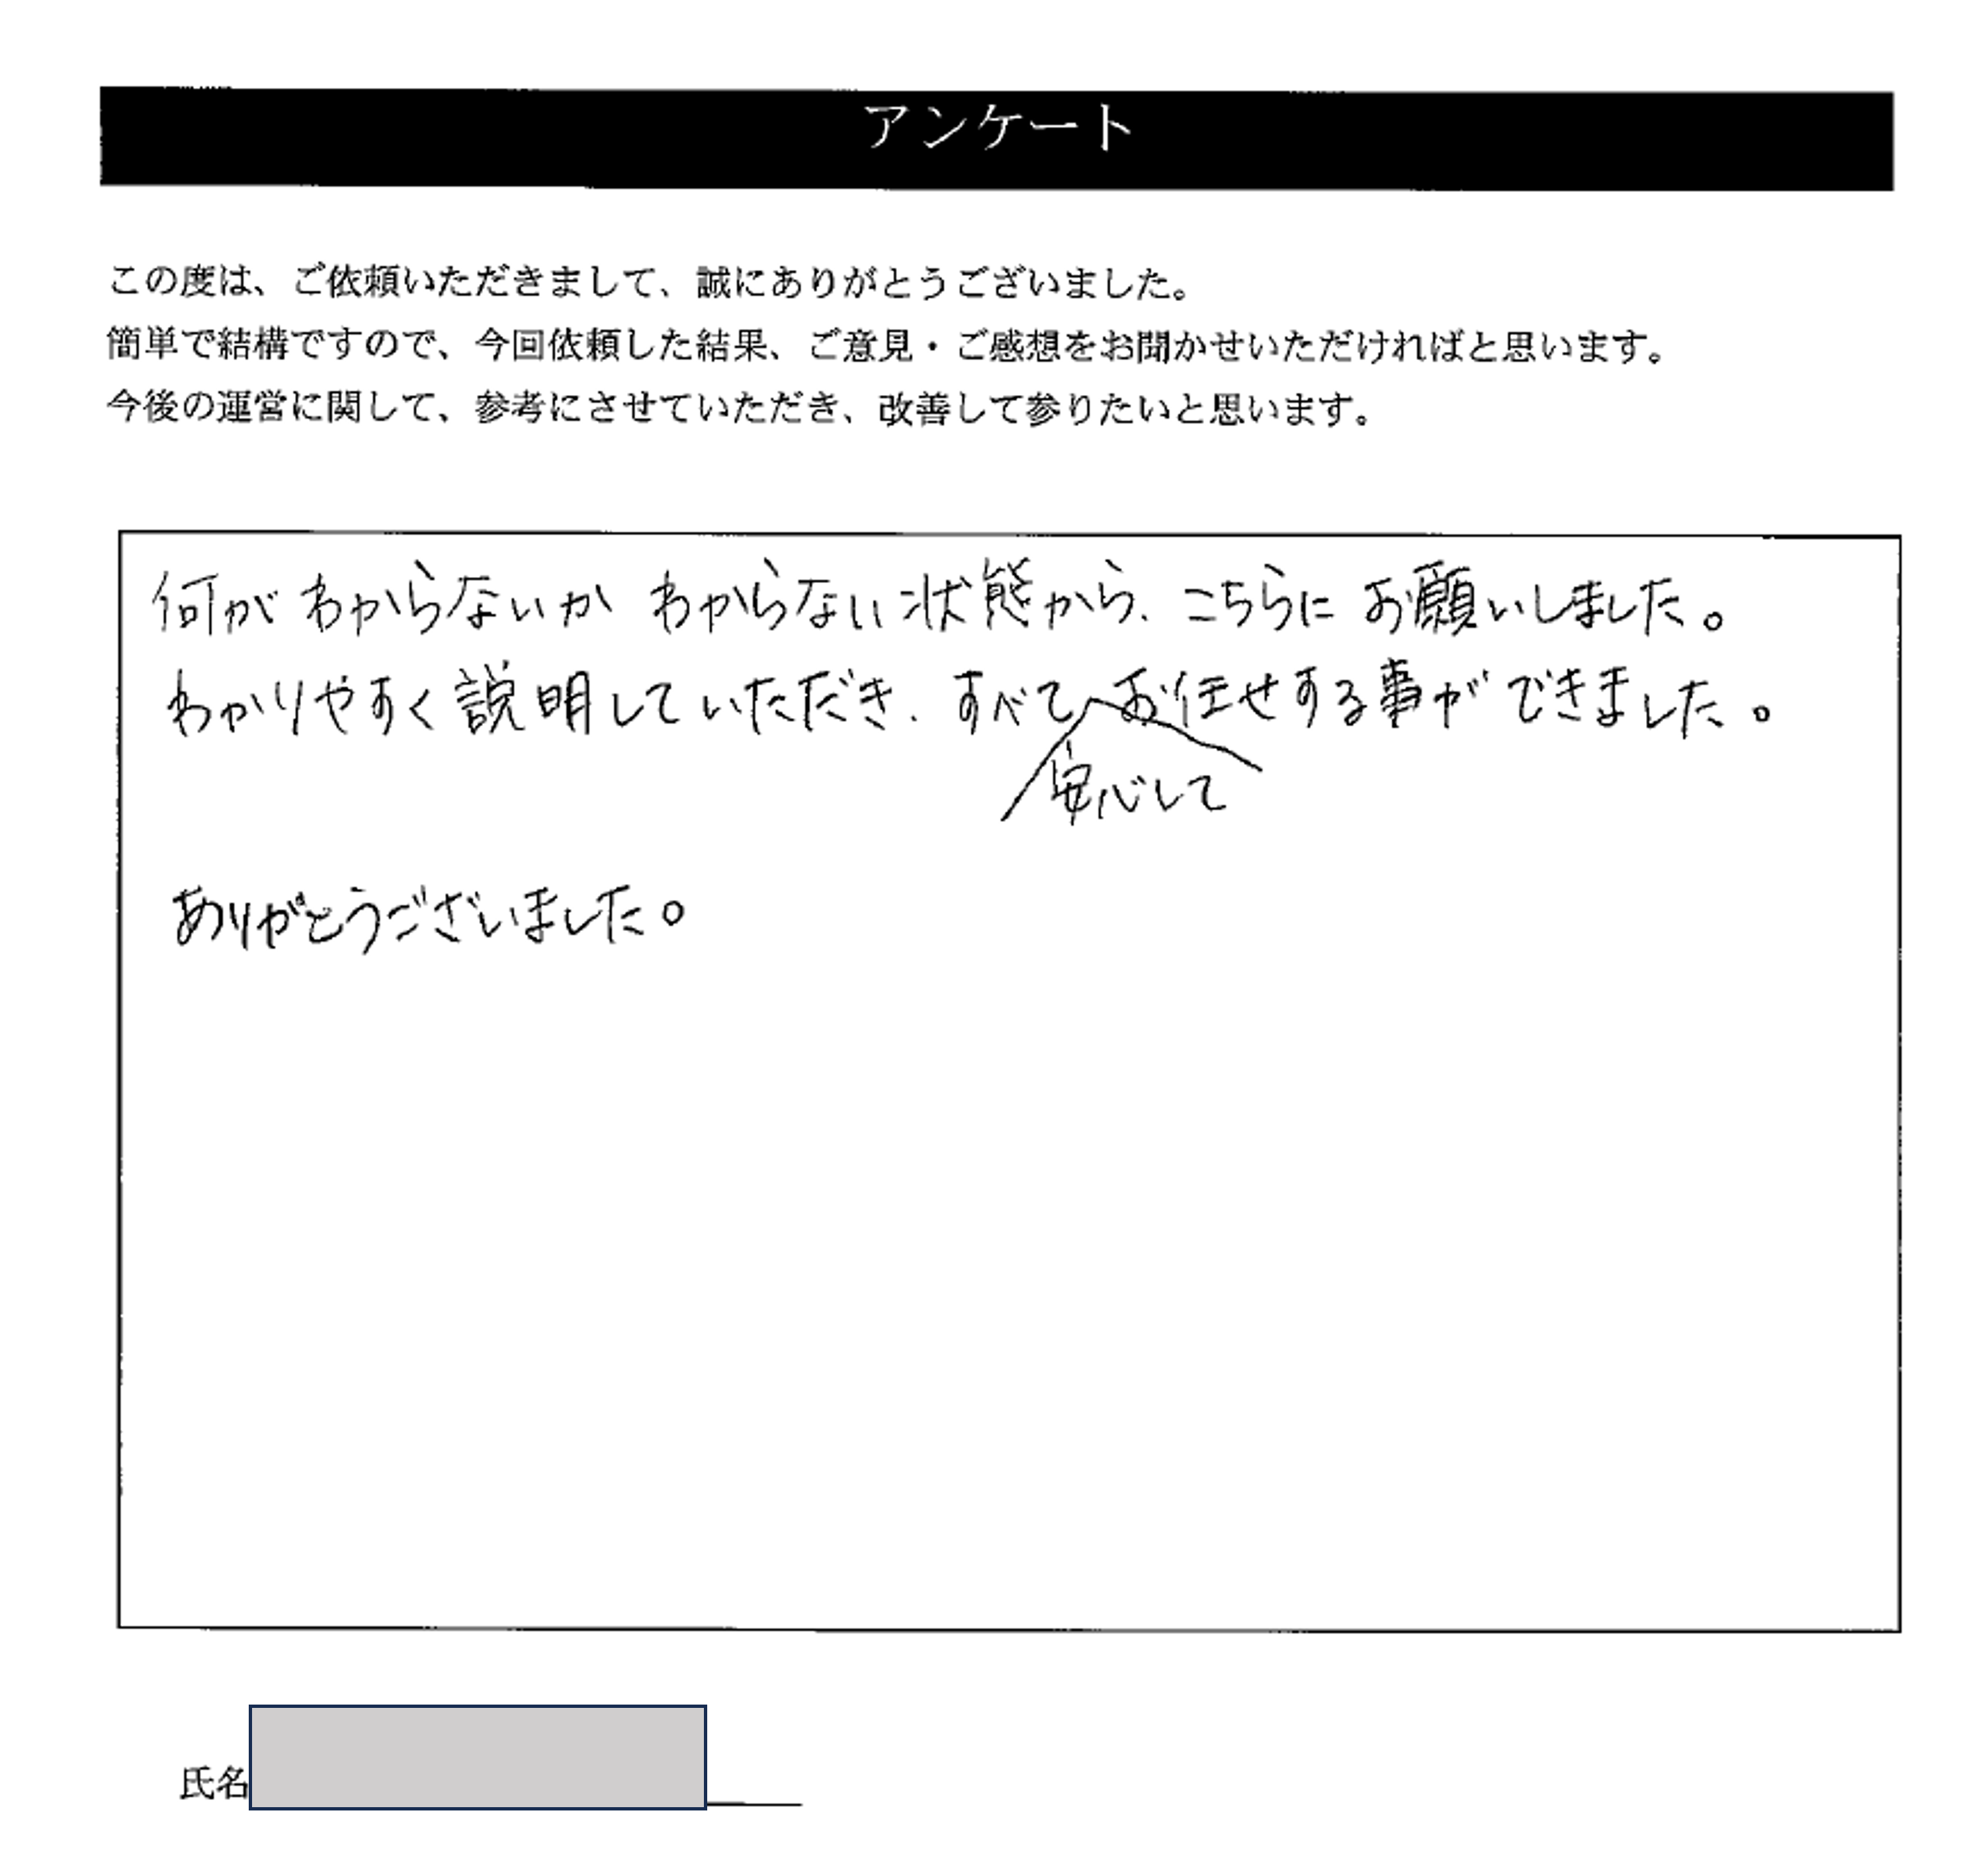 アンケート
この度は、ご依頼いただきまして、誠にありがとうございました。
簡単で結構ですので、今回依頼した結果、ご意見・ご感想をお聞かせいただければと思います。
今後の運営に関して、参考にさせていただき、改善して参りたいと思います。
何がわからないか わからない状態から、こちらに お願いしました。
わかりやすく説明していただき、すべてお任せする事ができました。
安心して
ありがとうございました。
氏名